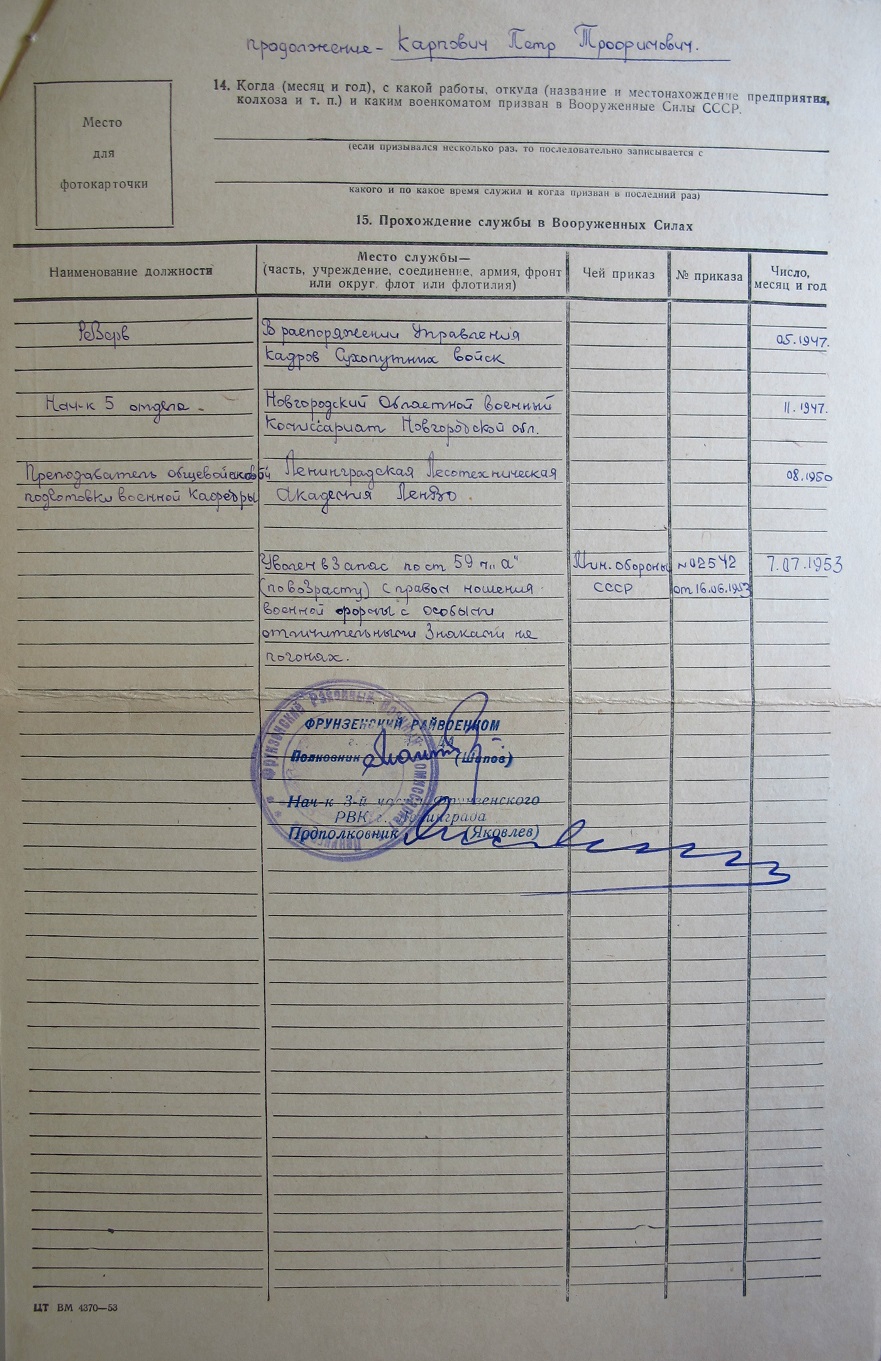 продолжение - Карпович Петр Трофимович.
Место
для
фотокарточки
14. Когда (месяц и год), с какой работы, откуда (название и местонахождение предприятия,
колхоза и т. п.) и каким военкоматом призван в Вооруженные Силы СССР.
(если призывался несколько раз, то последовательно записывается с
какого и по какое время служил и когда призван в последний раз)
15. Прохождение службы в Вооруженных Силах
Наименование должности
Место службы—
(часть, учреждение, соединение, армия, фронт
или округ, флот или флотилия)
Чей приказ
№ приказа
Число,
месяц и год
Резерв
В распоряжении Управления
05.1947.
Кадров Сухопутных войск
Нач-к 5 отдела.
Новгородский Областной военный
11.1947.
Комиссариат Новгородской обл.
Преподаватель общевойсковой
Ленинградская Лесотехническая
08.1950
подготовки военной Кафедры
Академия ЛенВО.
Уволен в Запас по ст 59 п „а"
Мин. обороны
№ 02542
7.07.1953
(по возрасту) с правом ношения
СССР
от 16.06.1953
военной формы с особыми
отличительными Знаками на
погонах.
ФРУНЗЕНСКИЙ РАЙВОЕНКОМ
Полковник (Шапов)
Нач-к 3-й части Фрунзенского
РВК г. Ленинграда
Подполковник (Яковлев)
ЦТ ВМ 4370—53